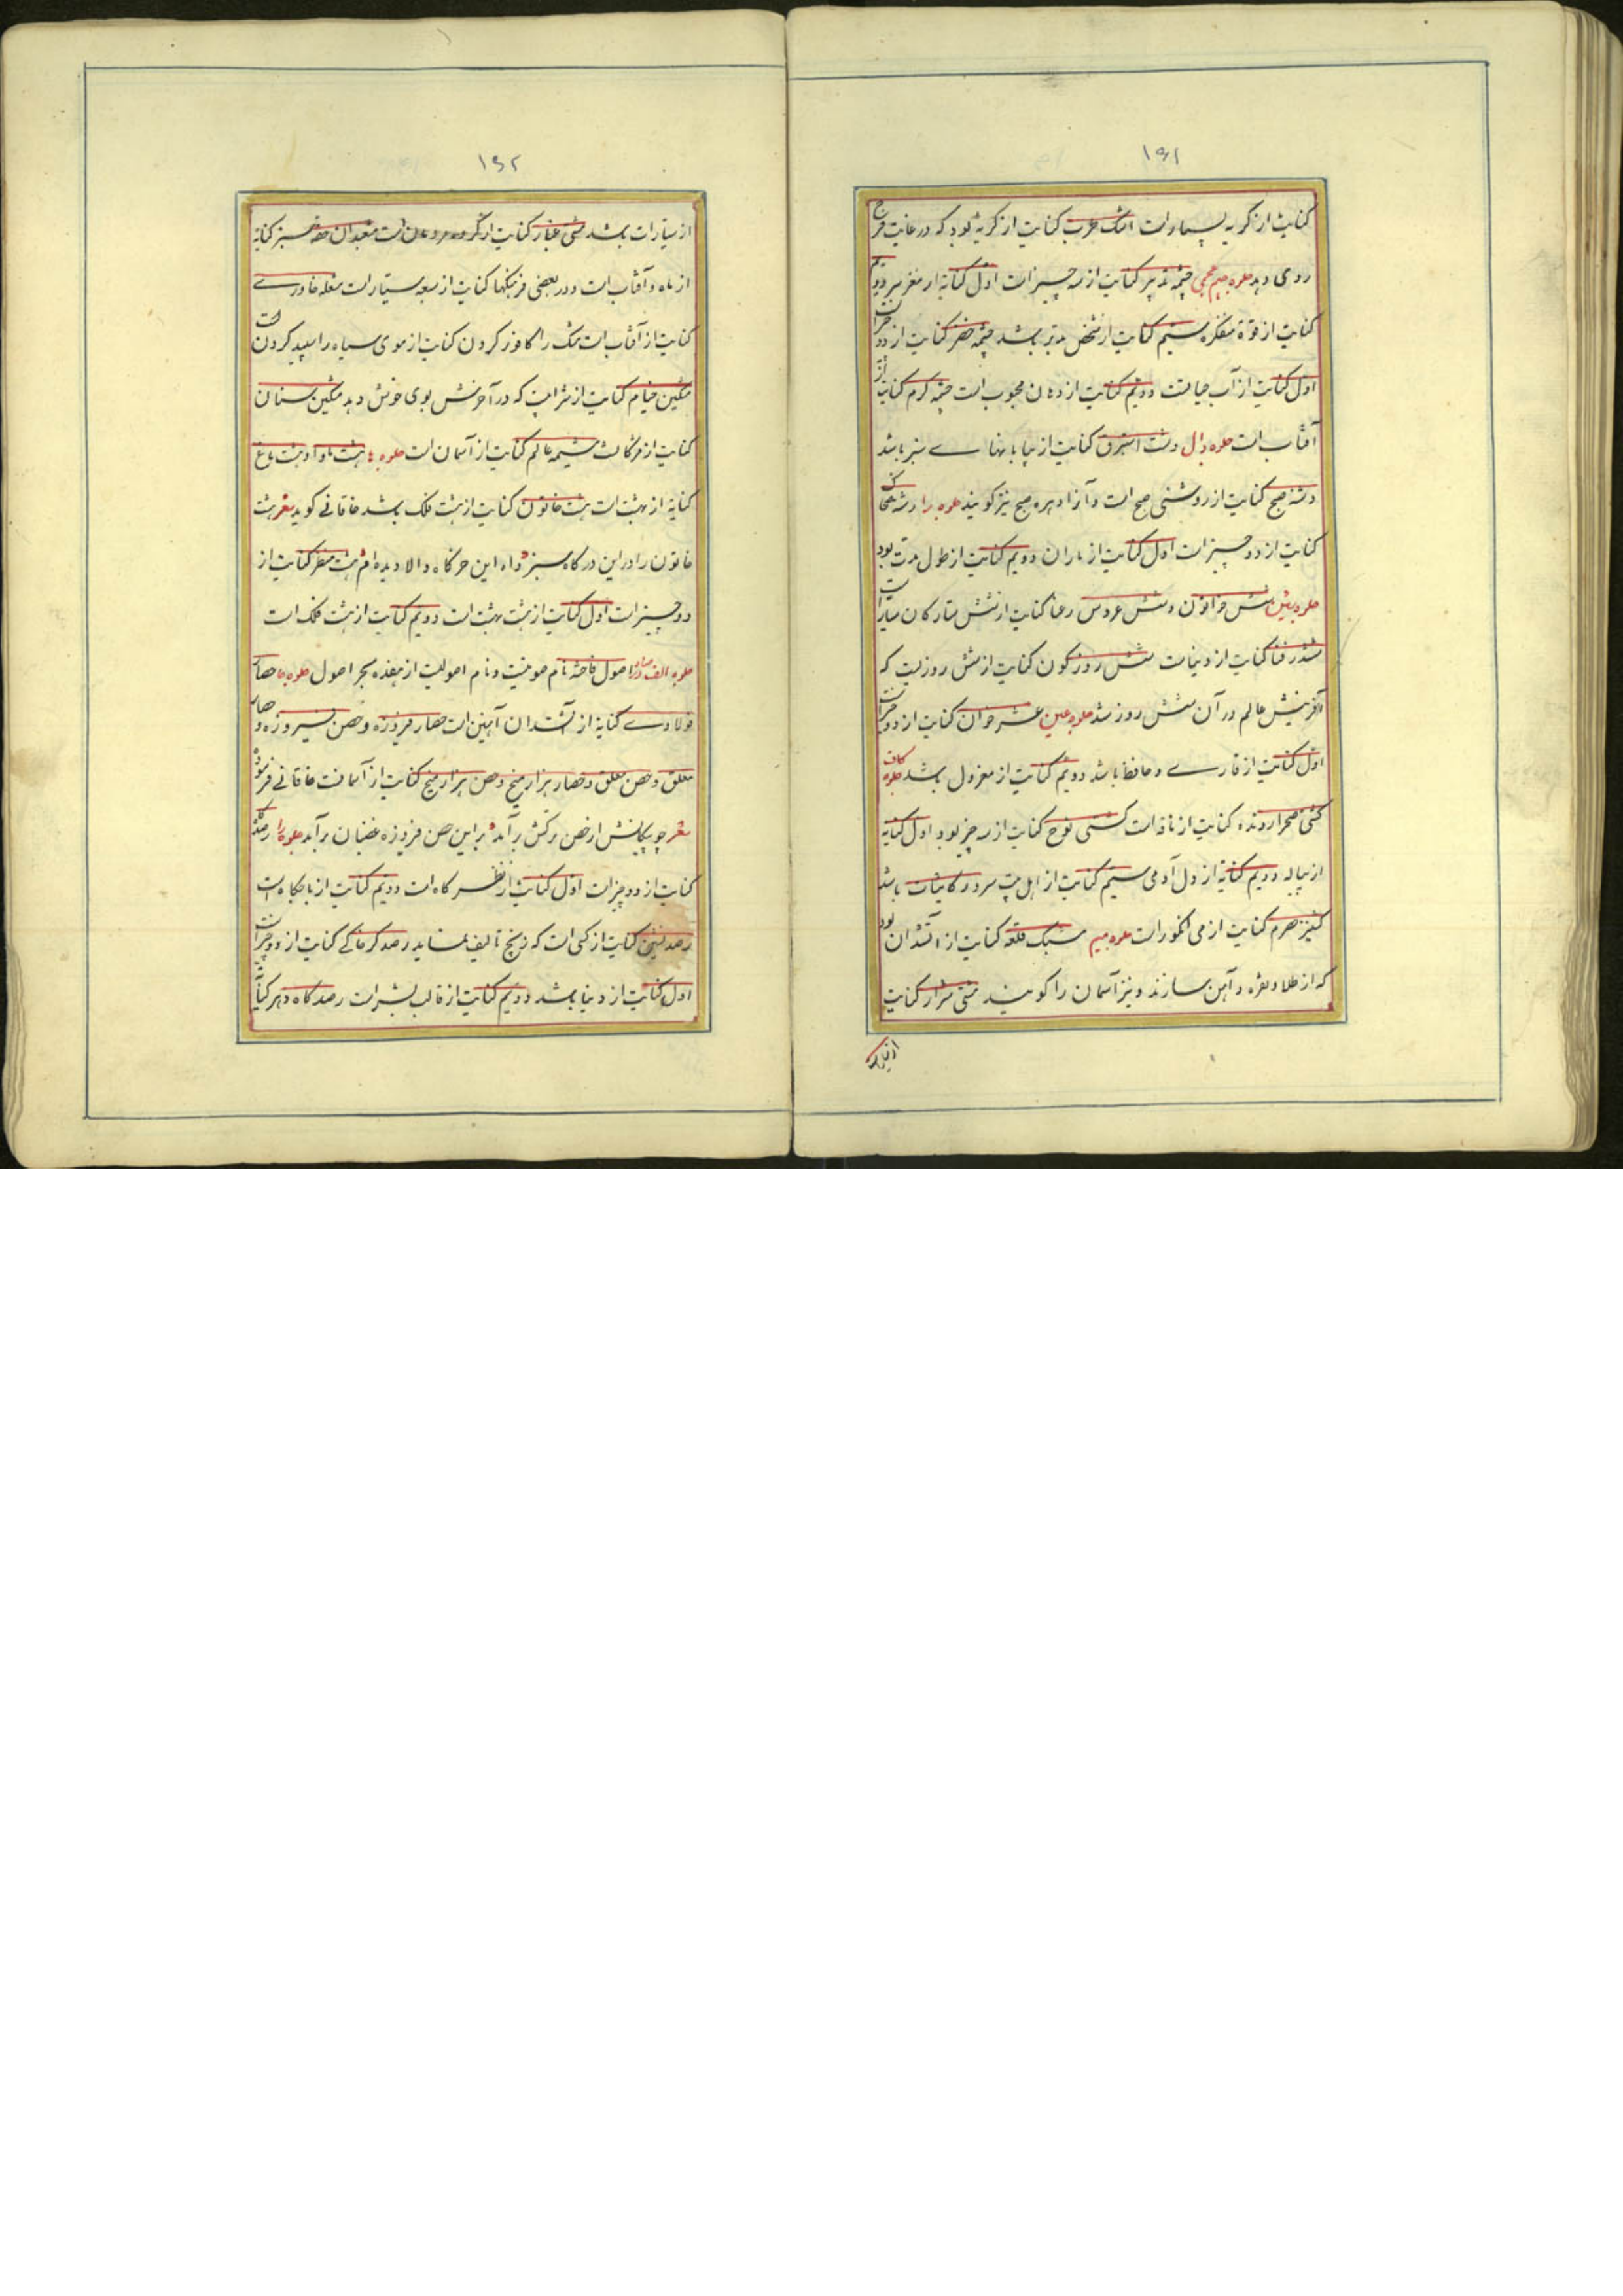 ۱۶۱
کنایت از گریه بسیار است اشک طرب کنایت از گریه بود که در غایت فرح
روی دهد جلوه جیم عجمی چشمه تدبیر کنایت از سه چیز است اول کنایة از مغز سر دویم
کنایت از قوة متفکره سیم کنایت از شخص مدبر باشد چشمه خضر کنایت از دو چیز است
اول کنایت از آب حیاتست دویم کنایت از دهان محبوب است چشمه گرم کنایت از
آفتاب است جلوه دال دشت استبرق کنایت از بیابانهای سبز باشد
دشنه صبح کنایت از روشنی صبح است و آنرا دهره صبح نیز گویند جلوه را رشته
کنایت از دو چیز است اول کنایت از باران دویم کنایت از طول مدت بود
جلوه شین شش خواتون و شش عروس رعنا کنایت از شش ستارگان سیار است
ششدر فنا کنایت از دنیاست شش روز کون کنایت از شش روزیست که
آفرینش عالم در آن شش روز شد جلوه عین عشر خوان کنایت از دو چیز است
اول کنایت از قاری و حافظ باشد دویم کنایت از معزول باشد جلوه کاف
کشتی صحرا رونده کنایت از ناقه است کشتی نوح کنایت از سه چیز بود اول کنایة
از پیاله دویم کنایة از دل آدمی سیم کنایت از اهل بیت سرور کاینات باشد
کنیز صرم کنایت از می انگور است جلوه میم مشبک قلعه کنایت از آتشدان بود
که از طلا و نقره و آهن سازند و نیز آسمان را گویند مشتی شرار کنایت
از سیارات
۱۶۲
از سیارات باشد مشتی غبار کنایت از گروه مردمان است معبدان سبز کنایة
از ماه و آفتاب است و در بعضی فرهنگها کنایت از سبعه سیار است مشعله خاوری
کنایت از آفتاب است مشک را کافور کردن کنایت از موی سیاه را سپید کردن است
مشکین ختام کنایت از شرابیست که در آخرش بوی خوش دهد مشکین سنان
کنایت از مژگانست مشیمه عالم کنایت از آسمان است جلوه ها هشت ماوا و هشت باغ
کنایة از بهشت است هشت خاتون کنایت از هشت فلک باشد خاقانی گوید شعر هشت
خاتون را در این درگاه سبز واه این خرگاه والا دیده ام هشت منظر کنایت از
دو چیز است اول کنایت از هشت بهشت است دویم کنایت از هشت فلک است
جلوه الف اصول فاخته نام صوتیست و نام اصولیست از هفده بحر اصول جلوه حا حصار
فولادی کنایة از آتشدان آهنین است حصار فیروزه و حصن فیروزه و حصار
معلق و حصن معلق و حصار هزار میخ و حصن هزار میخ کنایت از آسمانست خاقانی فرموده
شعر چو پیکانش از حصن ترکش برآید بر این حصن فیروزه غضبان برآید جلوه را رصدگاه
کنایت از دو چیز است اول کنایت از نظرگاه است دویم کنایت از باجگاه است
رصد نشین کنایت از کسی است که زیج تالیف نماید رصدگر خاکی کنایت از دو چیز است
اول کنایت از دنیا باشد دویم کنایت از قالب بشر است رصدگاه دهر کنایت